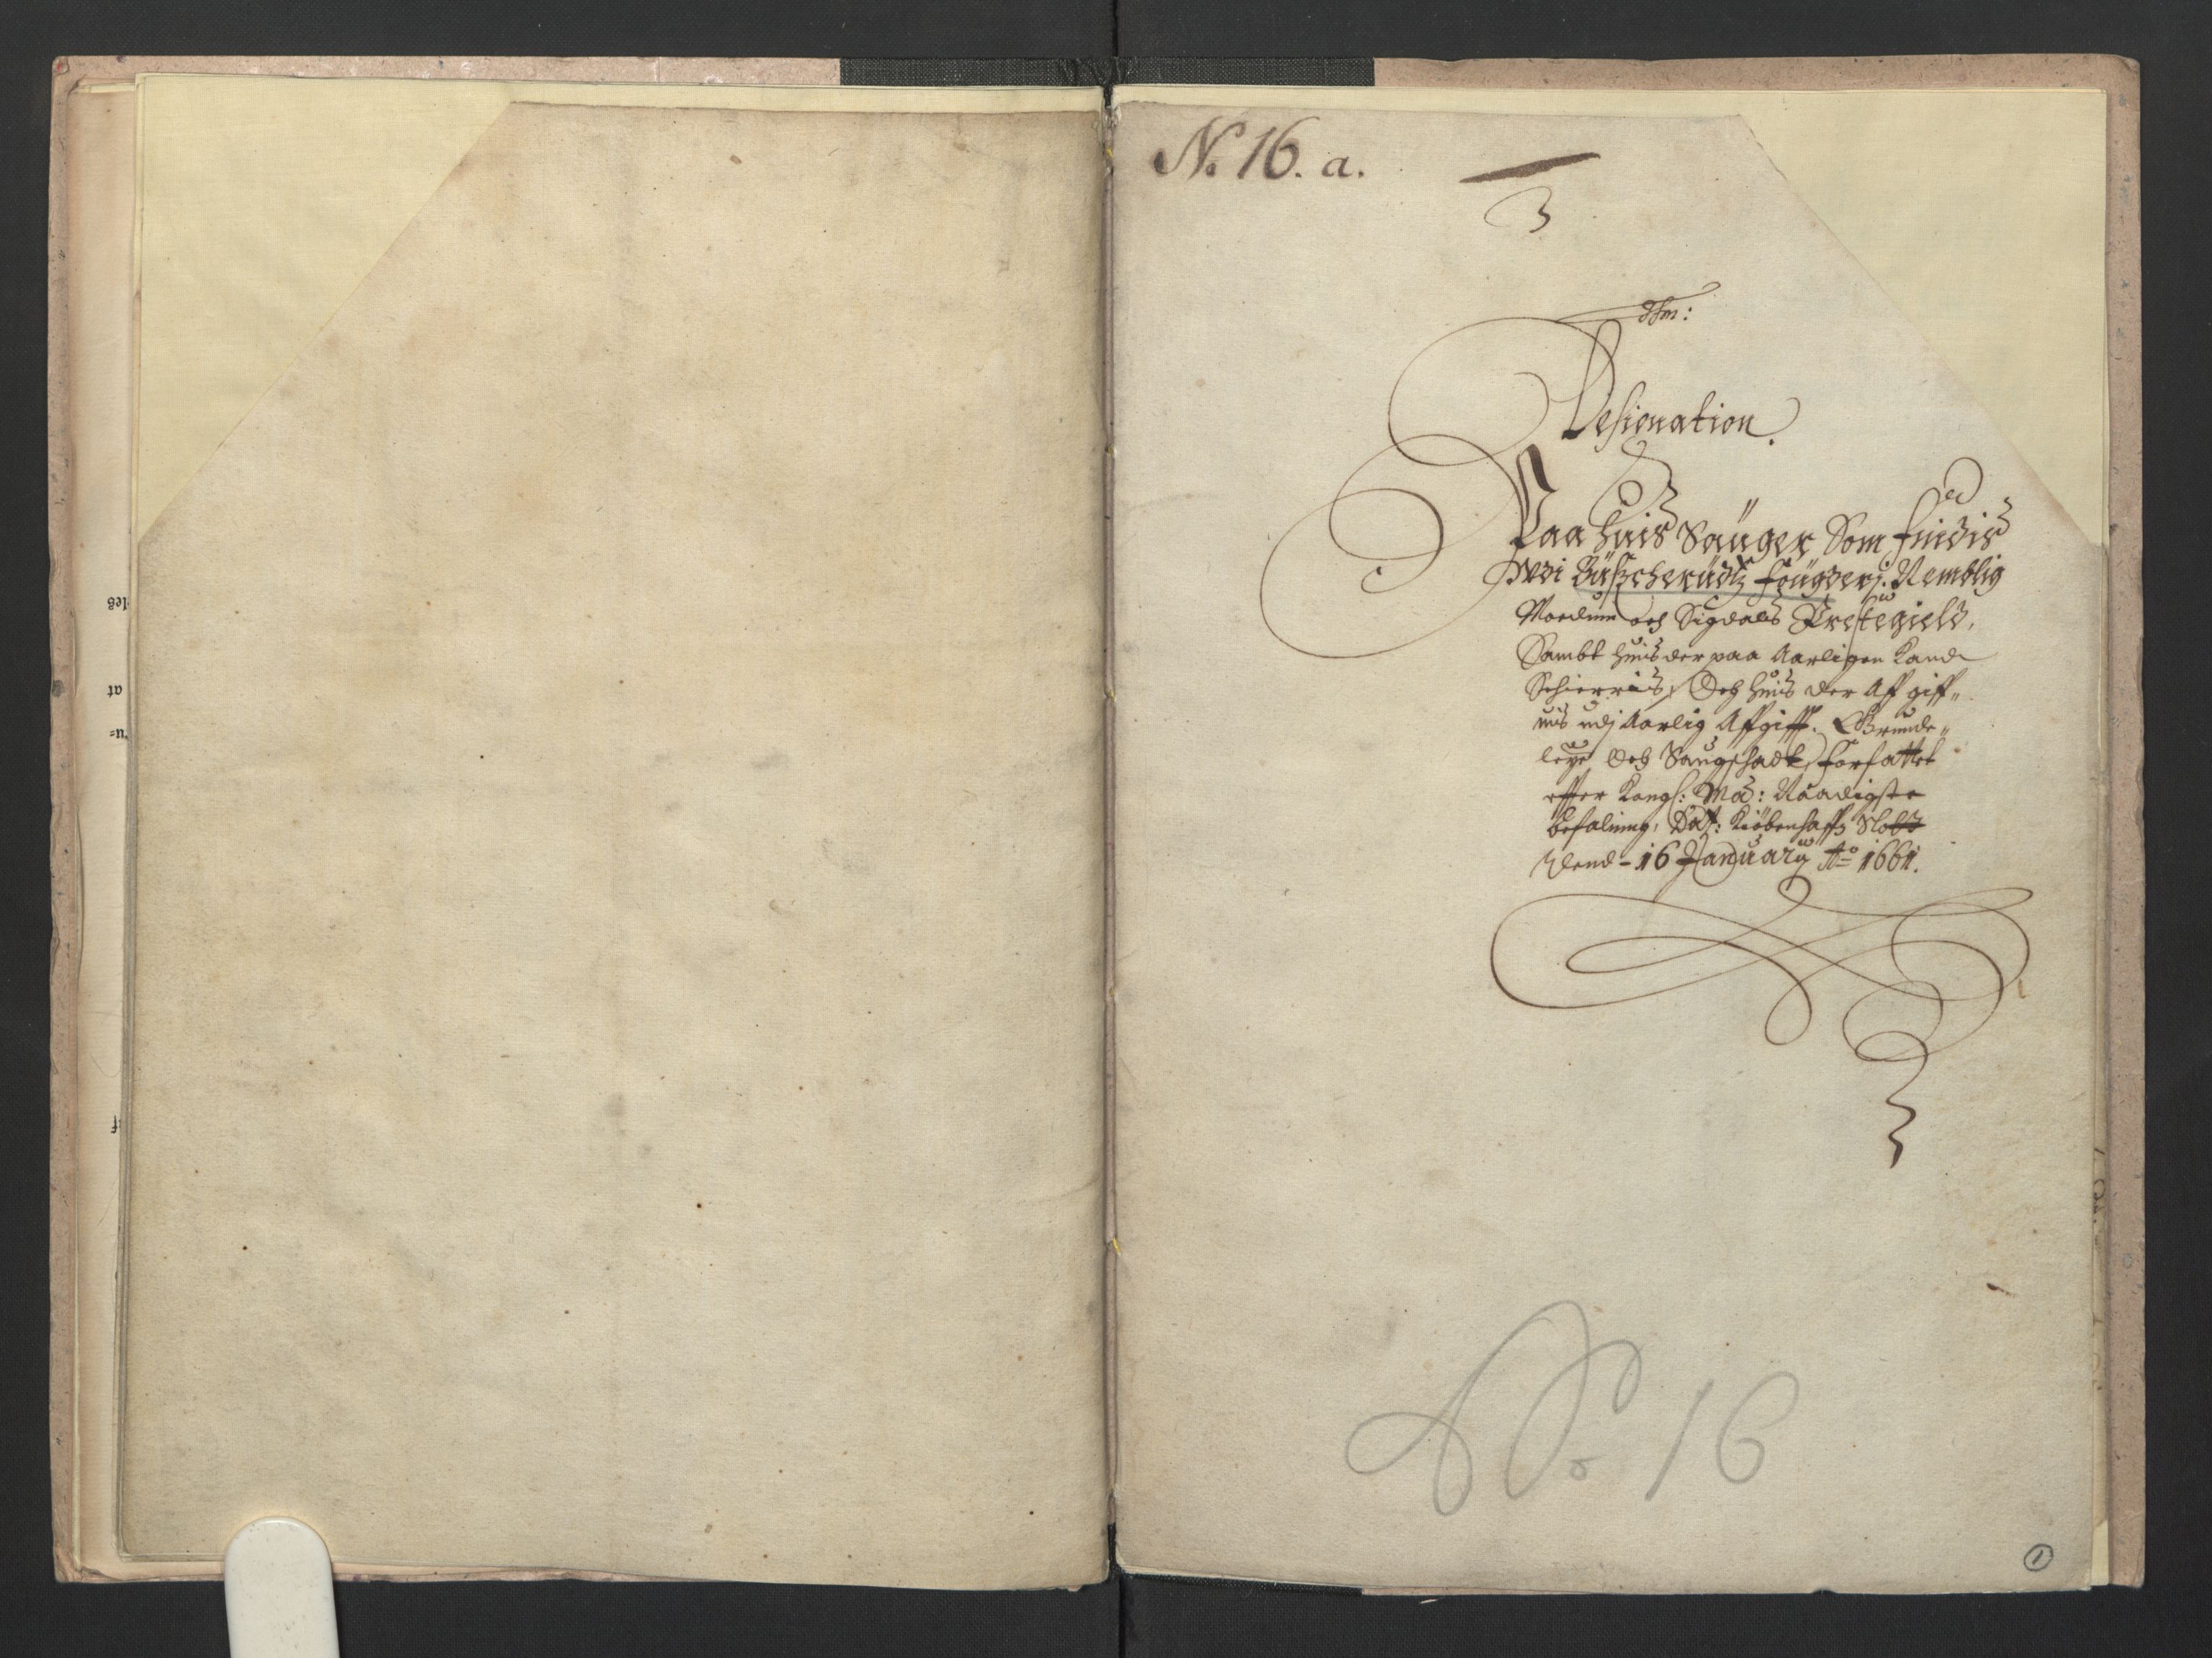 No 16. a.
3
Designation.
Paa huis Sauger Som findis
Wdi Buscheruds fougderj. Nemblig
Modumb och Sigdals Prestegield,
Sambt huis der paa Aarligen kand
Schierris, Och huis der Aff giff„
uis udj Aarlig Affgifft. Grunde„
leye Och Saugschadt, forfattet
effter Kongl: May: Naadigste
befaling, Dat: Kiøbenhaffs Slott
dend - 16 January Ao 1661.
No 16
1